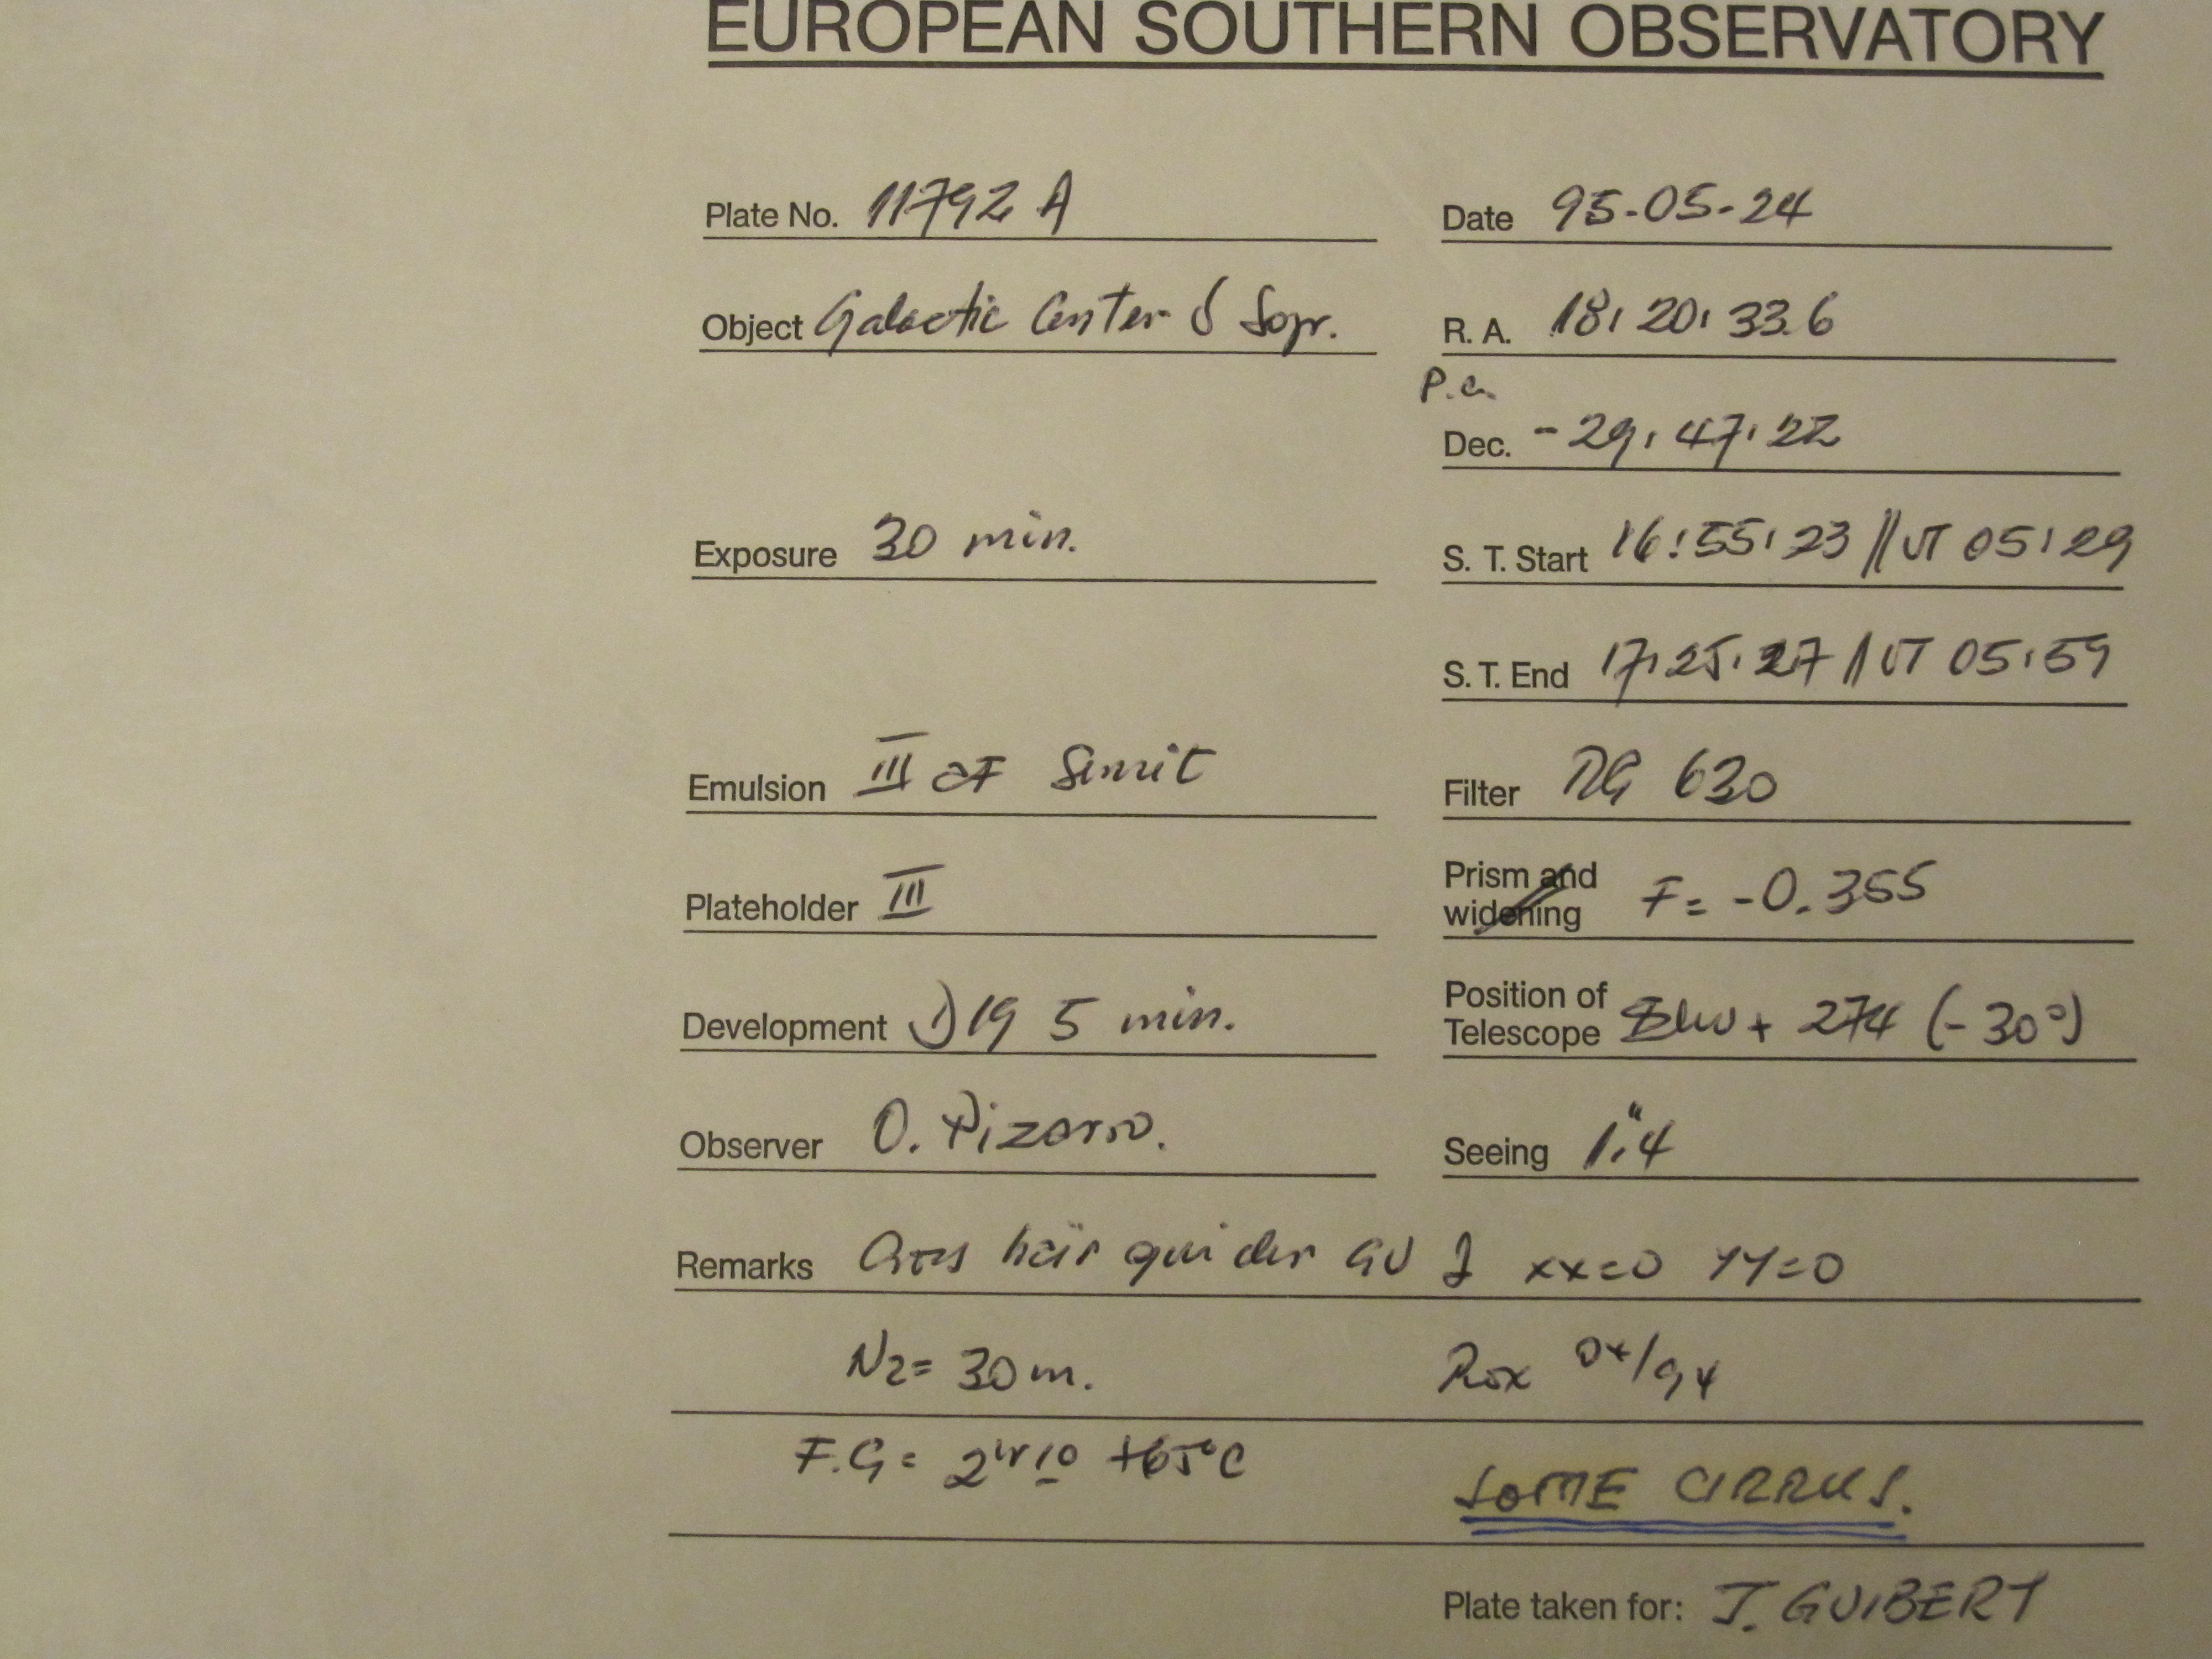 EUROPEAN SOUTHERN OBSERVATORY
Plate No. 11792 A
Date 95-05-24
Object Galactic Center
R. A. 18: 20: 33.6
P.a.
Dec. -29: 47: 22
Exposure 30 min.
S. T. Start 16:55:23 // UT 05:29
S. T. End 17:25:27 // UT 05:59
Emulsion III aF
Filter RG 630
Plateholder III
Prism and widening F= -0.355
Development D19 5 min.
Position of Telescope + 274 (-30°)
Observer O. Pizarro.
Seeing 1".4
Remarks guider xx=0 YY=0
N2= 30m.
F.G= +65°C
SOME CIRRUS.
Plate taken for: J. GUIBERT